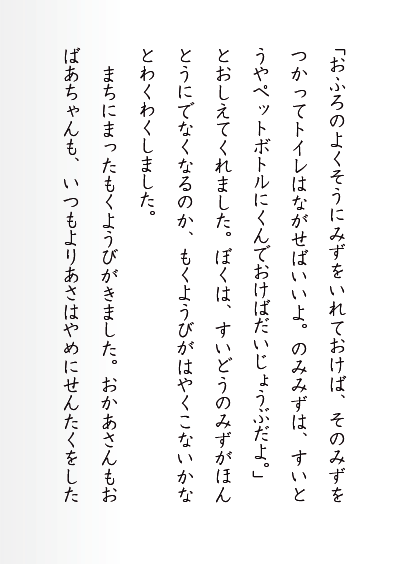 「おふろのよくそうにみずをいれておけば、そのみずを
つかってトイレはながせばいいよ。のみみずは、すいと
うやペットボトルにくんでおけばだいじょうぶだよ。」
とおしえてくれました。ぼくは、すいどうのみずがほん
とうにでなくなるのか、もくようびがはやくこないかな
とわくわくしました。
　まちにまったもくようびがきました。おかあさんもお
ばあちゃんも、いつもよりあさはやめにせんたくをした